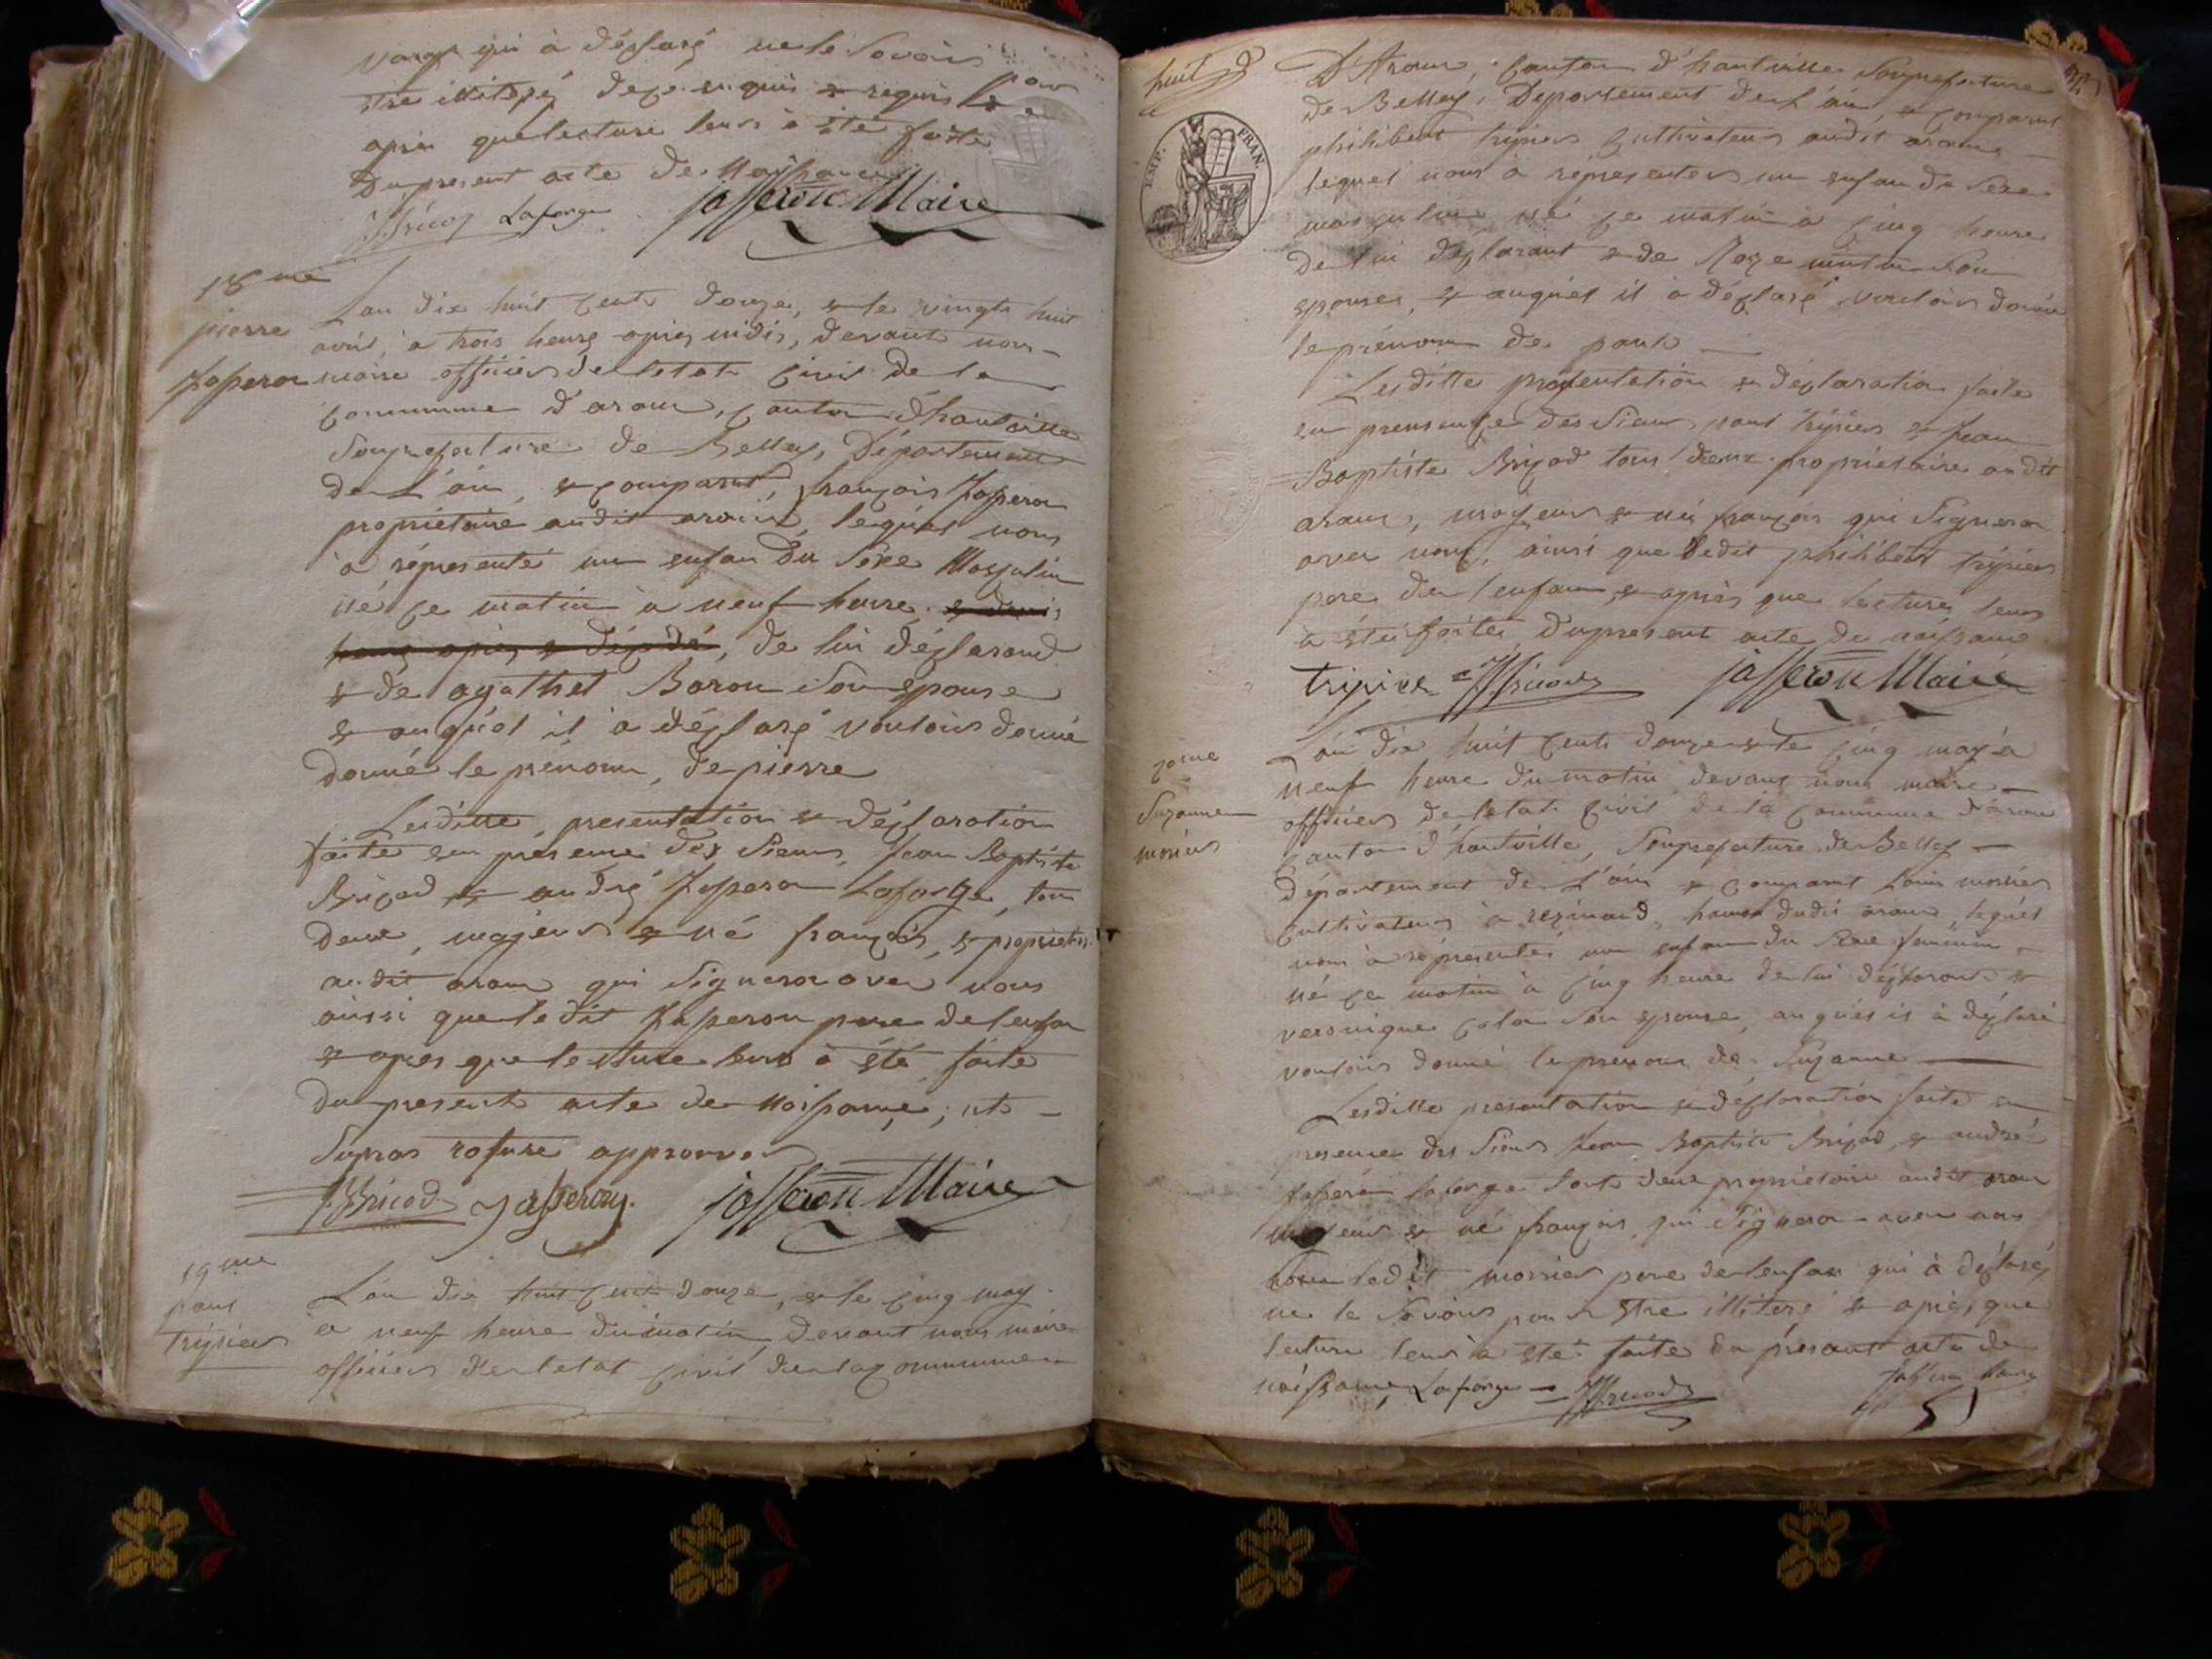 qui à déplaré ne le Savoir
pour
être illiteré de ce enquis & requis &
après que lecture leurs à été faite
Du present acte de Naissance
JBricod Laforge Jasseron Maire
18me
pierre
Jasseron
Lan dix huit cents douze, & le vingts huit
avril, à trois heure après midis, devant nous
maire officier de letat civil de la
commune d'aranc, canton d'hautville
Souprefecture de Belley, Département
De L'ain, & comparut, françois Jasseron
propriétaire audit aranc, lequel nous
à réprésenté un enfan Du Sexe Masculin
né ce matin à neuf heure & demis
heure après & décédé, de lui déplarand
& de agathet Baron Son epouse
& auquel il à déplaré vouloir donné
donné le prenom, de pierre
Lesditte, presentation & déplaration
faite en presence des Sieurs, Jean Baptiste
Bricod & andré Jasseron Laforge, tous
deux, majeurs & né françois, & propriets
audit aranc qui Signeron avec nous
ainsi que ledit Jasseron pere de lenfan
& après que lecture leurs à été faite
du present acte de Naissance, ut
Supras rature approuver
JBricod Jasseron Jasseron Maire
19me
paul
Tripier
L'an dix huit cents douze, & le cinq may
à neuf heure du matin, devant nous maire
officier de letat civil de la commune
huit
EMP. FRAN.
D'Aranc, canton d'hautville Souprefecture
de Belley, Departement de L'ain, & comparut
philibert tripier cultivateur audit aranc
lequel nous à répresenter un enfan du Sexe
masculin né ce matin à cinq heure
de lui déplarant & de Roze Son
epouse, & auquel il à déplaré vouloir donné
le prénom de paul
Lesditte présentation & déplaration faite
en presence des Sieurs paul tripier & Jean
Baptiste Bricod tous deux propriétaire audit
aranc, majeurs & né françois qui Signeron
avec nous, ainsi que ledit philibert tripier
pere de lenfan, & après que lecture leurs
à été faites, du present acte de naissance
tripier JBricod Jasseron Maire
20me
Suzanne
monier
L'an dix huit cents douze & le cinq may à
neuf heure du matin devant nous maire
officier de letat civil de la commune d'aranc
canton d'hautville, Souprefecture de Belley
département de L'ain & comparut Louis monier
cultivateur à rezinand, hameau dudit aranc, lequel
nous à réprésentés un enfan du Sexe feminin
né ce matin à cinq heure de lui déplarant &
veronique Son epouse, auquel il à déplaré
vouloir donné le prenom de Suzanne
Lesditte presentation & déplaration faite en
presence des Sieurs Jean Baptiste Bricod, & andré
Jasseron laforge tout deux propriétaire audit aranc
majeurs & né françois, qui Signeron avec nous
ledit monier pere de lenfan qui à déplaré
ne le Savoirs pour être illiteré & après que
lecture leurs à été faite du présant acte de
naissance, Laforge JBricod Jasseron Maire